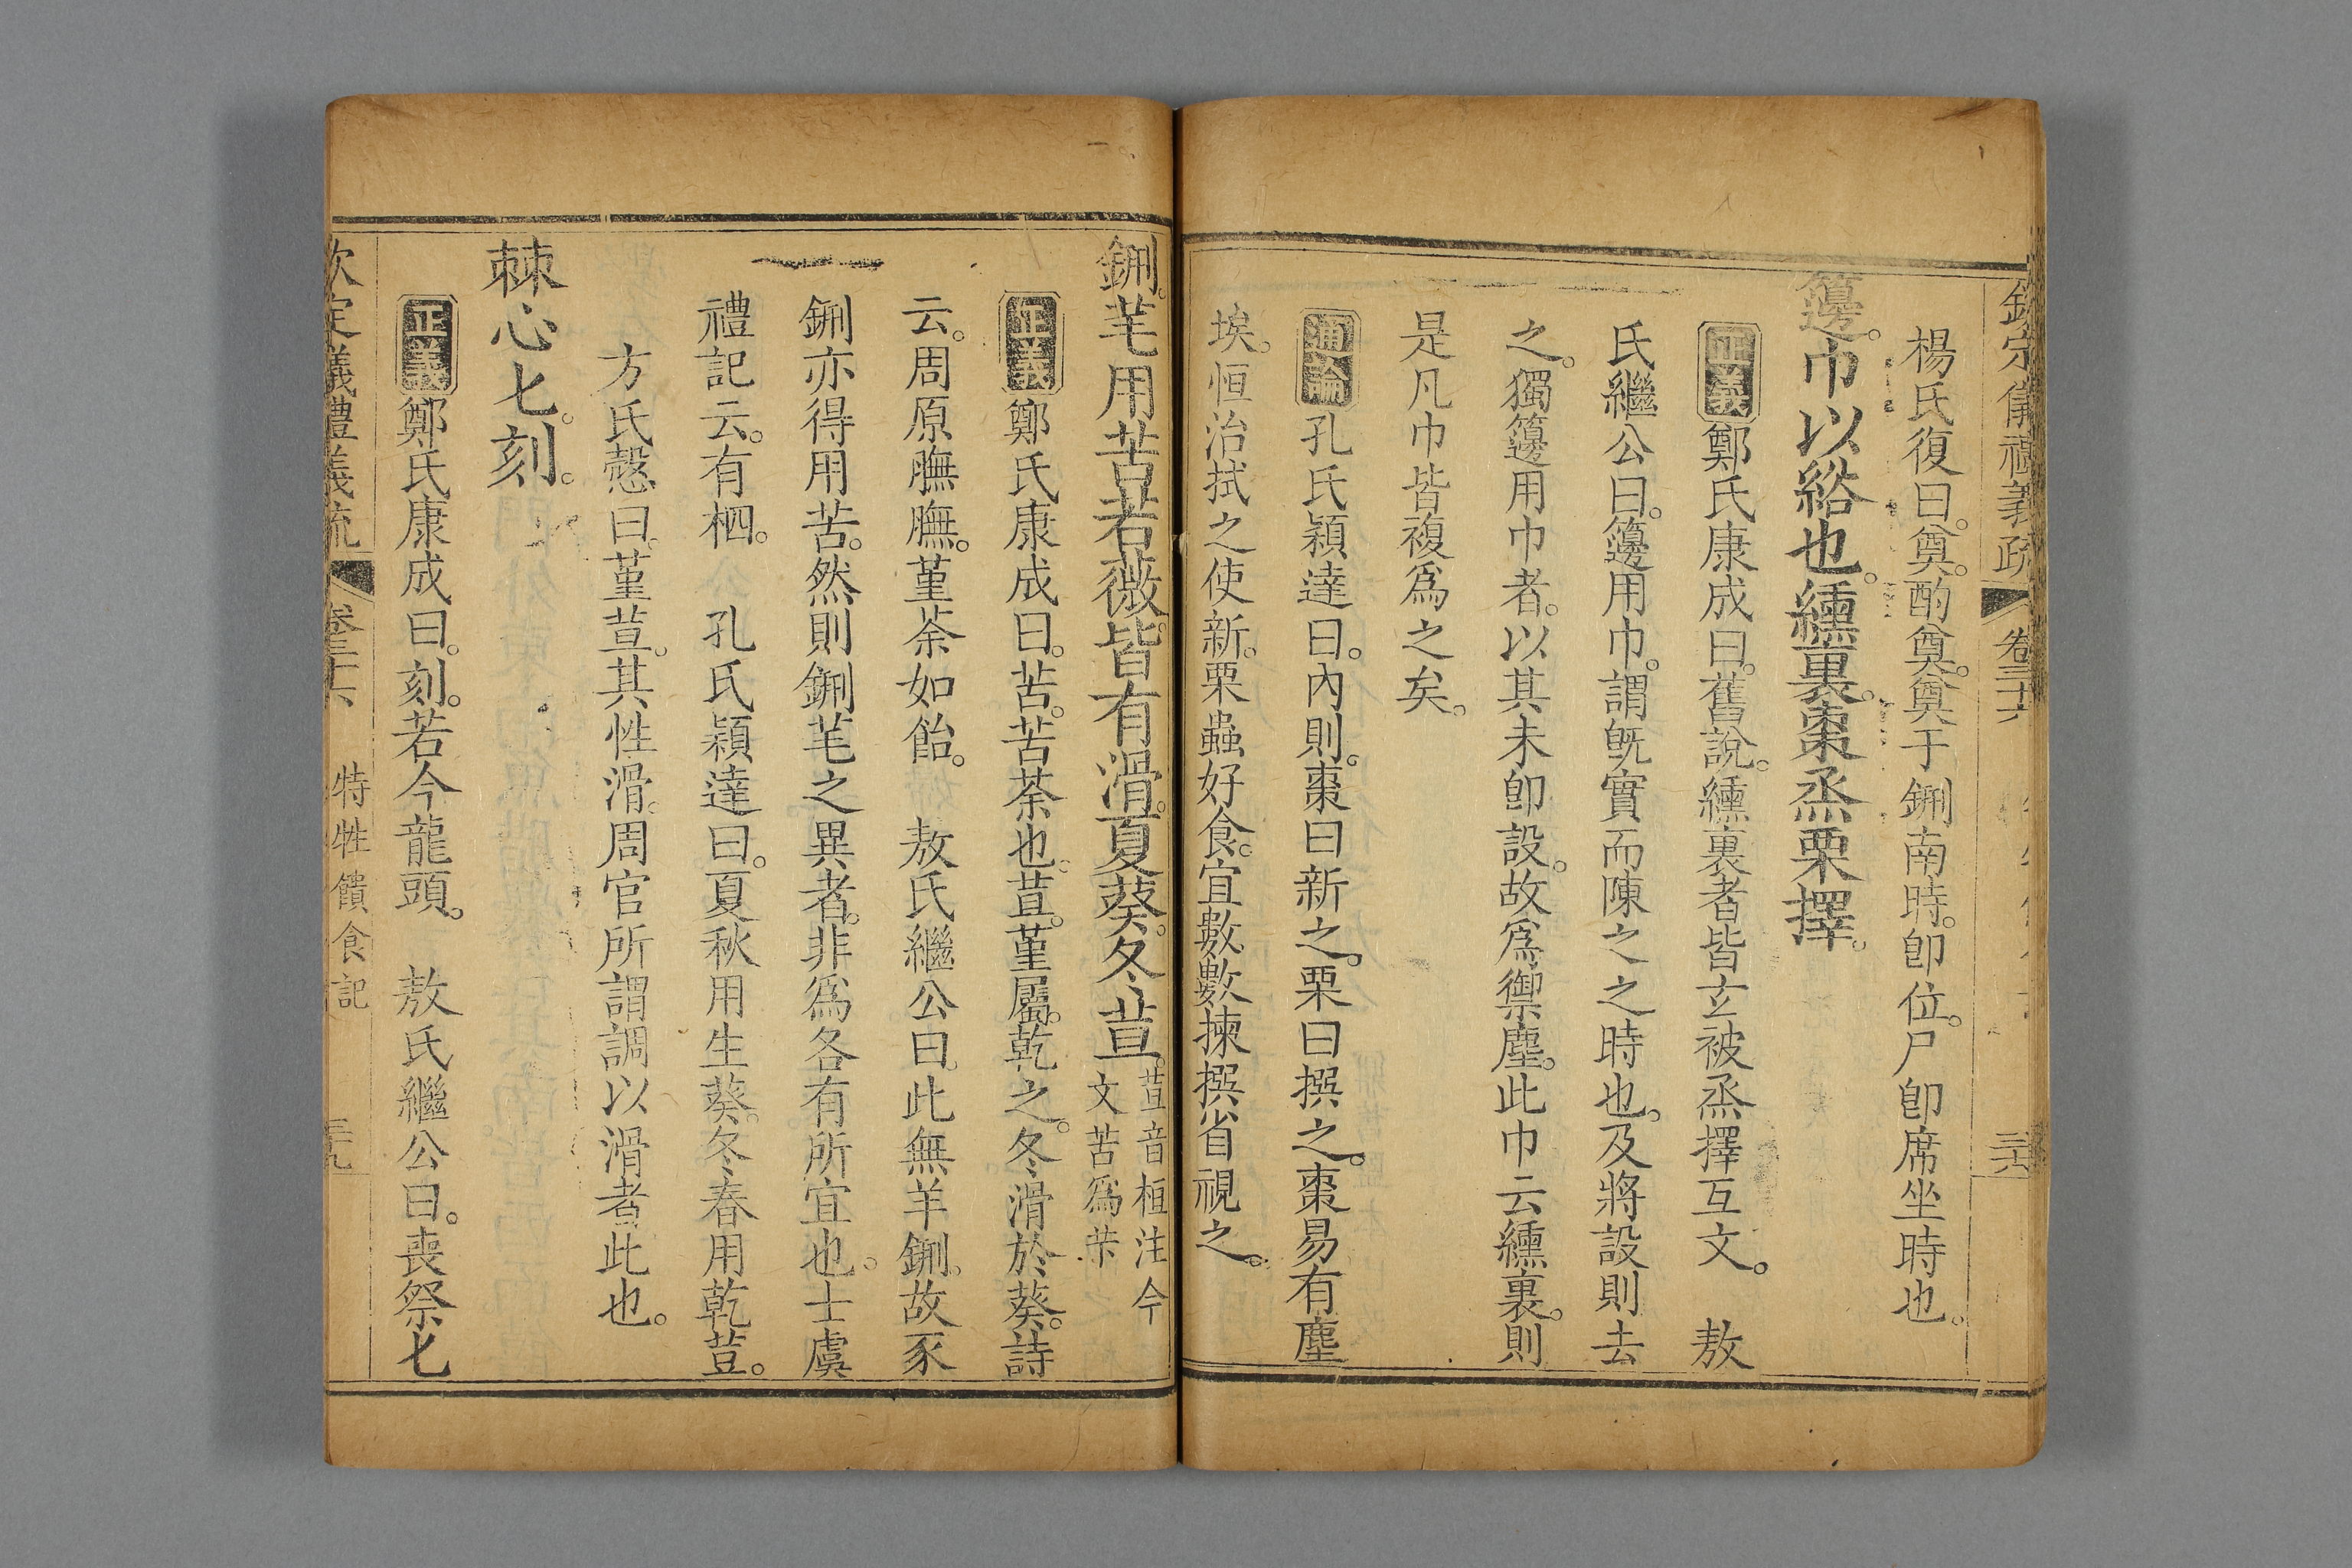 欽定儀禮義疏 卷三十六
楊氏復曰。奠。酌奠。奠于鉶南時。卽位。尸卽席坐時也。
籩。巾以綌也。纁裏。棗烝栗擇。
正義 鄭氏康成曰。舊說。纁裏者皆玄被烝擇互文。 敖
氏繼公曰。籩用巾。謂旣實而陳之之時也。及將設則去
之。獨籩用巾者。以其未卽設。故爲禦塵。此巾云纁裏。則
是凡巾皆複爲之矣。
通論 孔氏穎達曰。內則。棗曰新之。栗曰撰之。棗易有塵
埃。恒治拭之使新。栗蟲好食。宜數數揀撰省視之。
鉶。芼用苦若薇。皆有滑。夏葵。冬荁。荁音桓注今
文苦爲苄
正義 鄭氏康成曰。苦。苦荼也。荁。堇屬。乾之。冬滑於葵。詩
云。周原膴膴。堇荼如飴。 敖氏繼公曰。此無羊鉶。故豕
鉶亦得用苦。然則鉶芼之異者。非爲各有所宜也。士虞
禮記云。有柶。 孔氏穎達曰。夏秋用生葵。冬春用乾荁。
方氏慤曰。堇荁。其性滑。周官所謂調以滑者此也。
棘心匕。刻。
正義 鄭氏康成曰。刻。若今龍頭。 敖氏繼公曰。喪祭匕
欽定儀禮義疏 卷三十六 特牲饋食記 三九